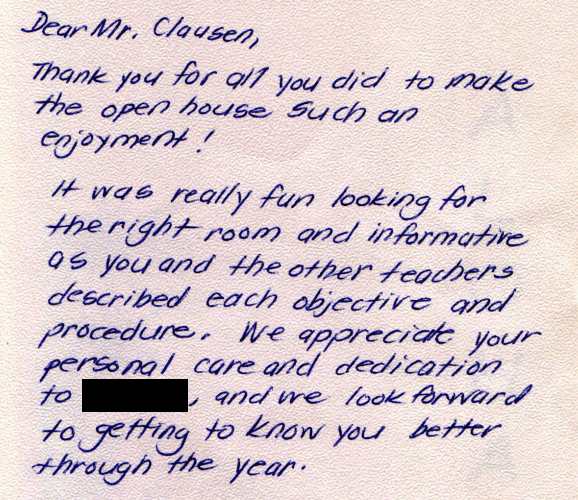 Dear Mr. Clausen,
Thank you for all you did to make
the open house such an
enjoyment!
It was really fun looking for
the right room and informative
as you and the other teachers
described each objective and
procedure. We appreciate your
personal care and dedication
to , and we look forward
to getting to know you better
through the year.